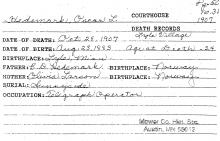 Hedemark, Oscar L. COURTHOUSE 1907
DEATH RECORDS
Lyle Village
DATE OF DEATH: Oct 28, 1907
DATE OF BIRTH: Aug 23, 1883 Age at Death - 24
BIRTHPLACE: Lyle, Minn
FATHER: Hedemark BIRTHPLACE: Norway
MOTHER: Larson BIRTHPLACE: Norway
BURIAL:
OCCUPATION: Telegraph Operator
Mower Co. Hist. Soc.
Austin, MN 55912